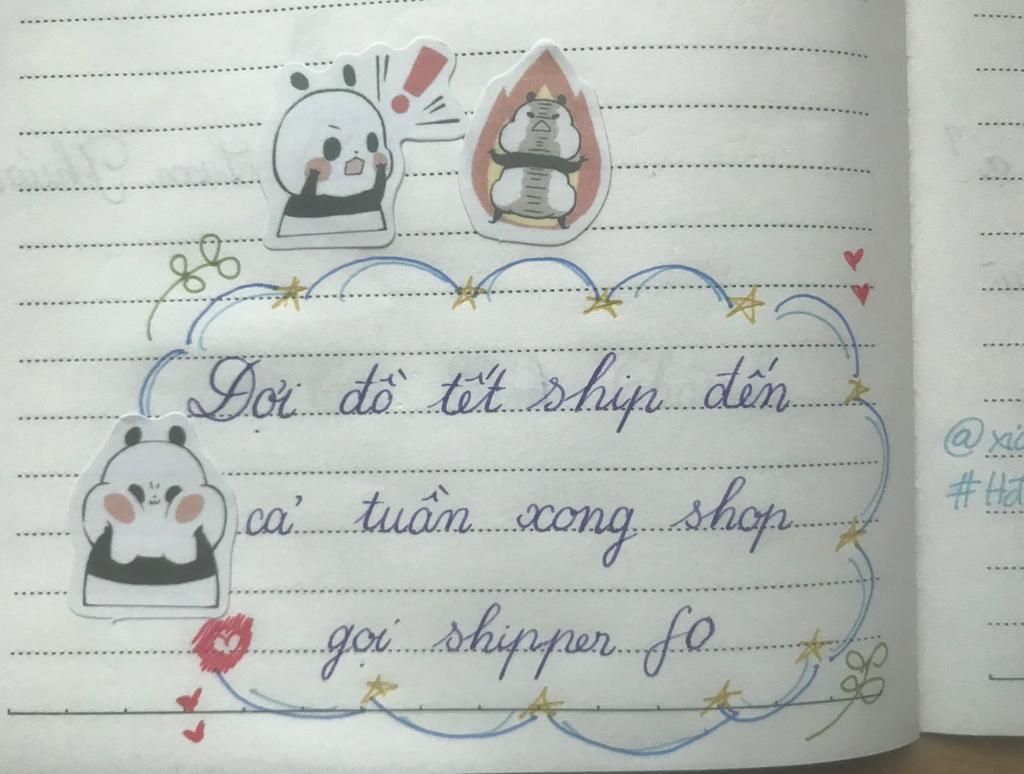 Đợi đồ tết ship đến
cả tuần xong shop
gọi shipper f0
@xi
#Hot